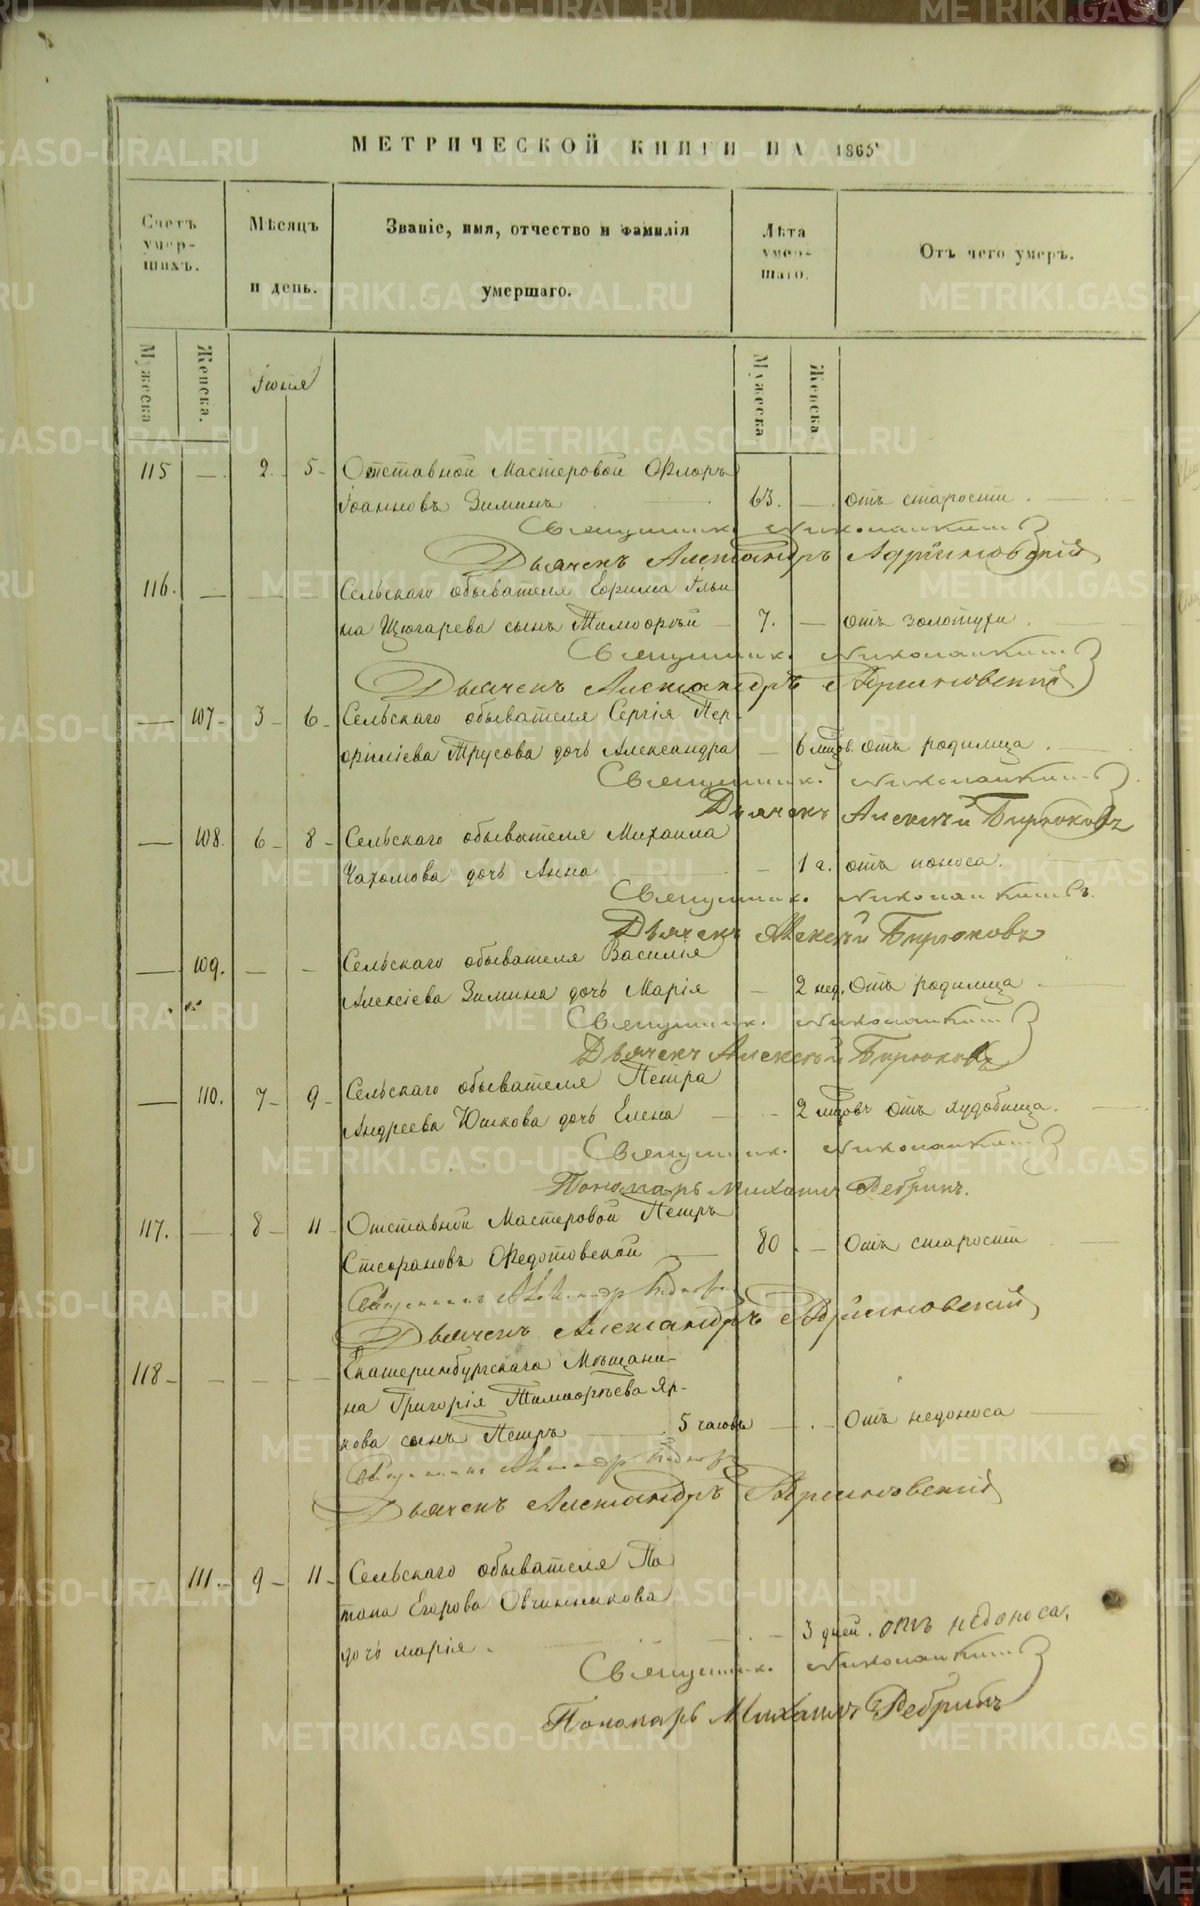 МЕТРИЧЕСКОЙ КНИГИ НА 1865
Счетъ умер-шихъ.
Мѣсяцъ и день.
Званіе, имя, отчество и фамилія умершаго.
Лѣта умер-шаго.
Отъ чего умеръ.
Мужеска
Женска.
Іюня
Мужеска
Женска
115 — 2 5 Отставной Мастеровой Флоръ
Іоанновъ Зиминъ 63. — отъ старости.
Священникъ
Дьячекъ Александръ Адріановскій
116. — — — Сельскаго обывателя Ефима Ильи
на Щюгарева сынъ Тимофѣй — 7. — отъ золотухи.
Священникъ
Дьячекъ Александръ Адріановскій
— 107 3 6 Сельскаго обывателя Сергія Пер-
филіева Трусова дочь Александра — 6 мцов. отъ родимца.
Священникъ
Дьячекъ Алексѣй Бирюковъ
— 108. 6 8 Сельскаго обывателя Михаила
дочь Анна — 1 г. отъ поноса.
Священникъ
Дьячекъ Алексѣй Бирюковъ
— 109. — — Сельскаго обывателя Василья
Алексіева Зимина дочь Марія — 2 нед. отъ родимца
Священникъ
Дьячекъ Алексѣй Бирюковъ
— 110. 7 9 Сельскаго обывателя Петра
Андреева Юшкова дочь Елена — 2 мцовъ отъ худобища.
Священникъ
Пономарь Михаилъ Ребринъ.
117. — 8 11 Отставной Мастеровой Петръ
Стефановъ Федотовской 80 — Отъ старости
Священникъ Александръ
Дьячекъ Александръ Адріановскій
118 — — — Екатеринбургскаго Мѣщани-
на Григорія Тимофѣева Яр-
кова сынъ Петръ 5 часовъ — Отъ недоноса
Священникъ Александръ
Дьячекъ Александръ Адріановскій
— 111. 9 11 Сельскаго обывателя По
тапа Егорова Овчинникова
дочь Марія. — 3 дней. отъ недоноса.
Священникъ
Пономарь Михаилъ Ребринъ
METRIKI.GASO-URAL.RU